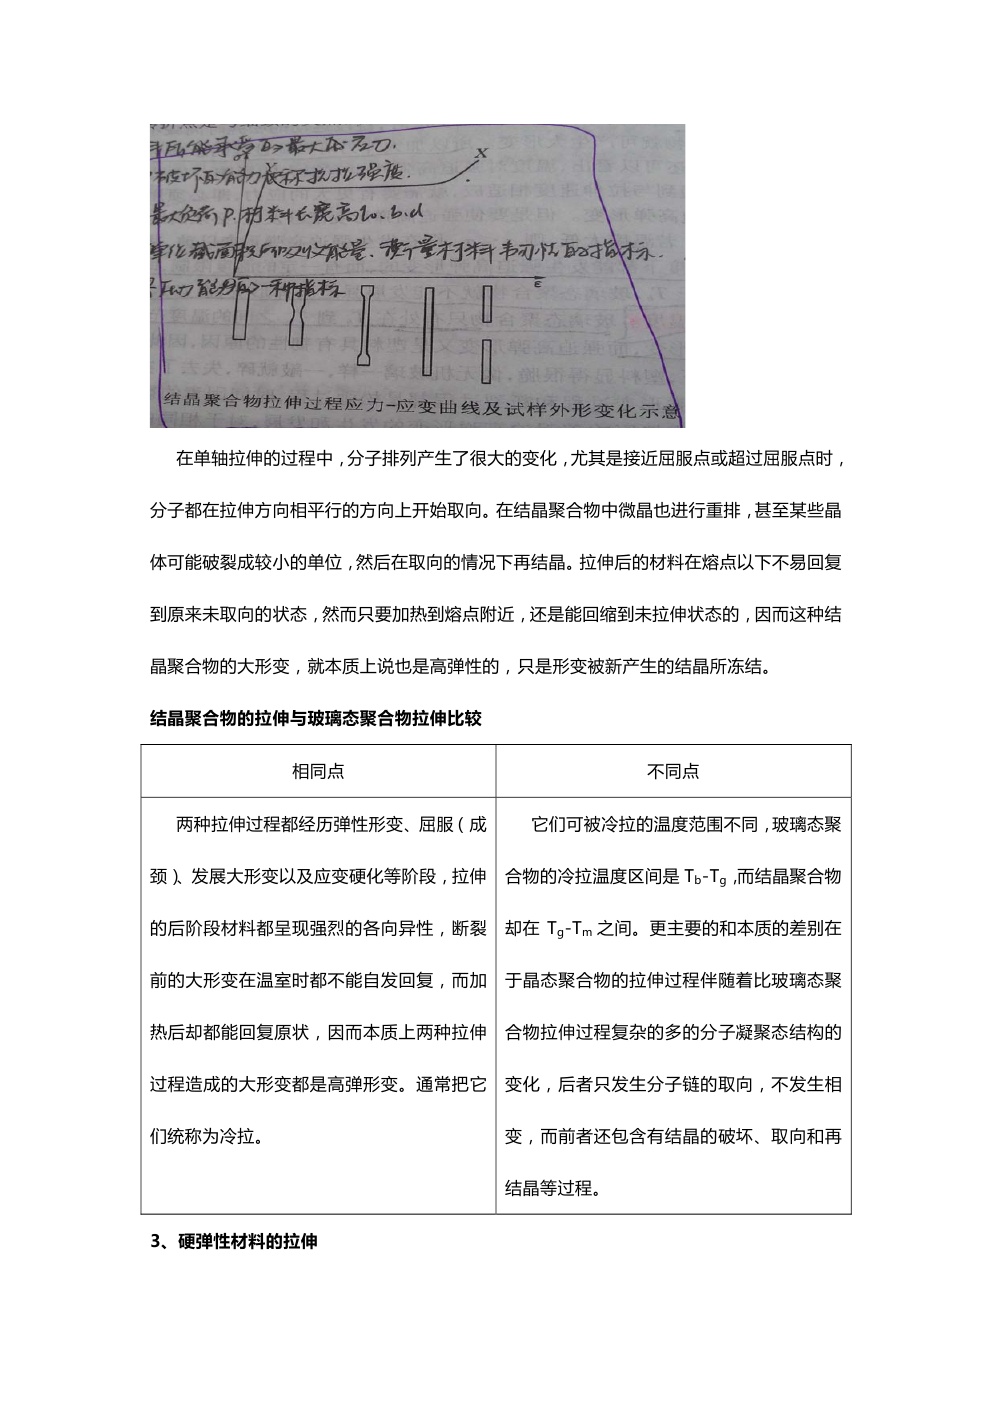 料所能承受的最大压应力.
破坏的能力称抗拉强度.
Y
X
最大负荷P.材料长宽高l₀、b、d
单位截面积所吸收能量、衡量材料韧性的指标.
压力能力的一种指标
ε
结晶聚合物拉伸过程应力-应变曲线及试样外形变化示意
在单轴拉伸的过程中，分子排列产生了很大的变化，尤其是接近屈服点或超过屈服点时，
分子都在拉伸方向相平行的方向上开始取向。在结晶聚合物中微晶也进行重排，甚至某些晶
体可能破裂成较小的单位，然后在取向的情况下再结晶。拉伸后的材料在熔点以下不易回复
到原来未取向的状态，然而只要加热到熔点附近，还是能回缩到未拉伸状态的，因而这种结
晶聚合物的大形变，就本质上说也是高弹性的，只是形变被新产生的结晶所冻结。
结晶聚合物的拉伸与玻璃态聚合物拉伸比较
相同点
两种拉伸过程都经历弹性形变、屈服（成
颈）、发展大形变以及应变硬化等阶段，拉伸
的后阶段材料都呈现强烈的各向异性，断裂
前的大形变在温室时都不能自发回复，而加
热后却都能回复原状，因而本质上两种拉伸
过程造成的大形变都是高弹形变。通常把它
们统称为冷拉。
不同点
它们可被冷拉的温度范围不同，玻璃态聚
合物的冷拉温度区间是 Tb-Tg，而结晶聚合物
却在 Tg-Tm 之间。更主要的和本质的差别在
于晶态聚合物的拉伸过程伴随着比玻璃态聚
合物拉伸过程复杂的多的分子凝聚态结构的
变化，后者只发生分子链的取向，不发生相
变，而前者还包含有结晶的破坏、取向和再
结晶等过程。
3、硬弹性材料的拉伸